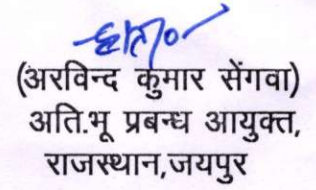 (अरविन्द कुमार सेंगवा)
अति.भू प्रबन्ध आयुक्त,
राजस्थान,जयपुर